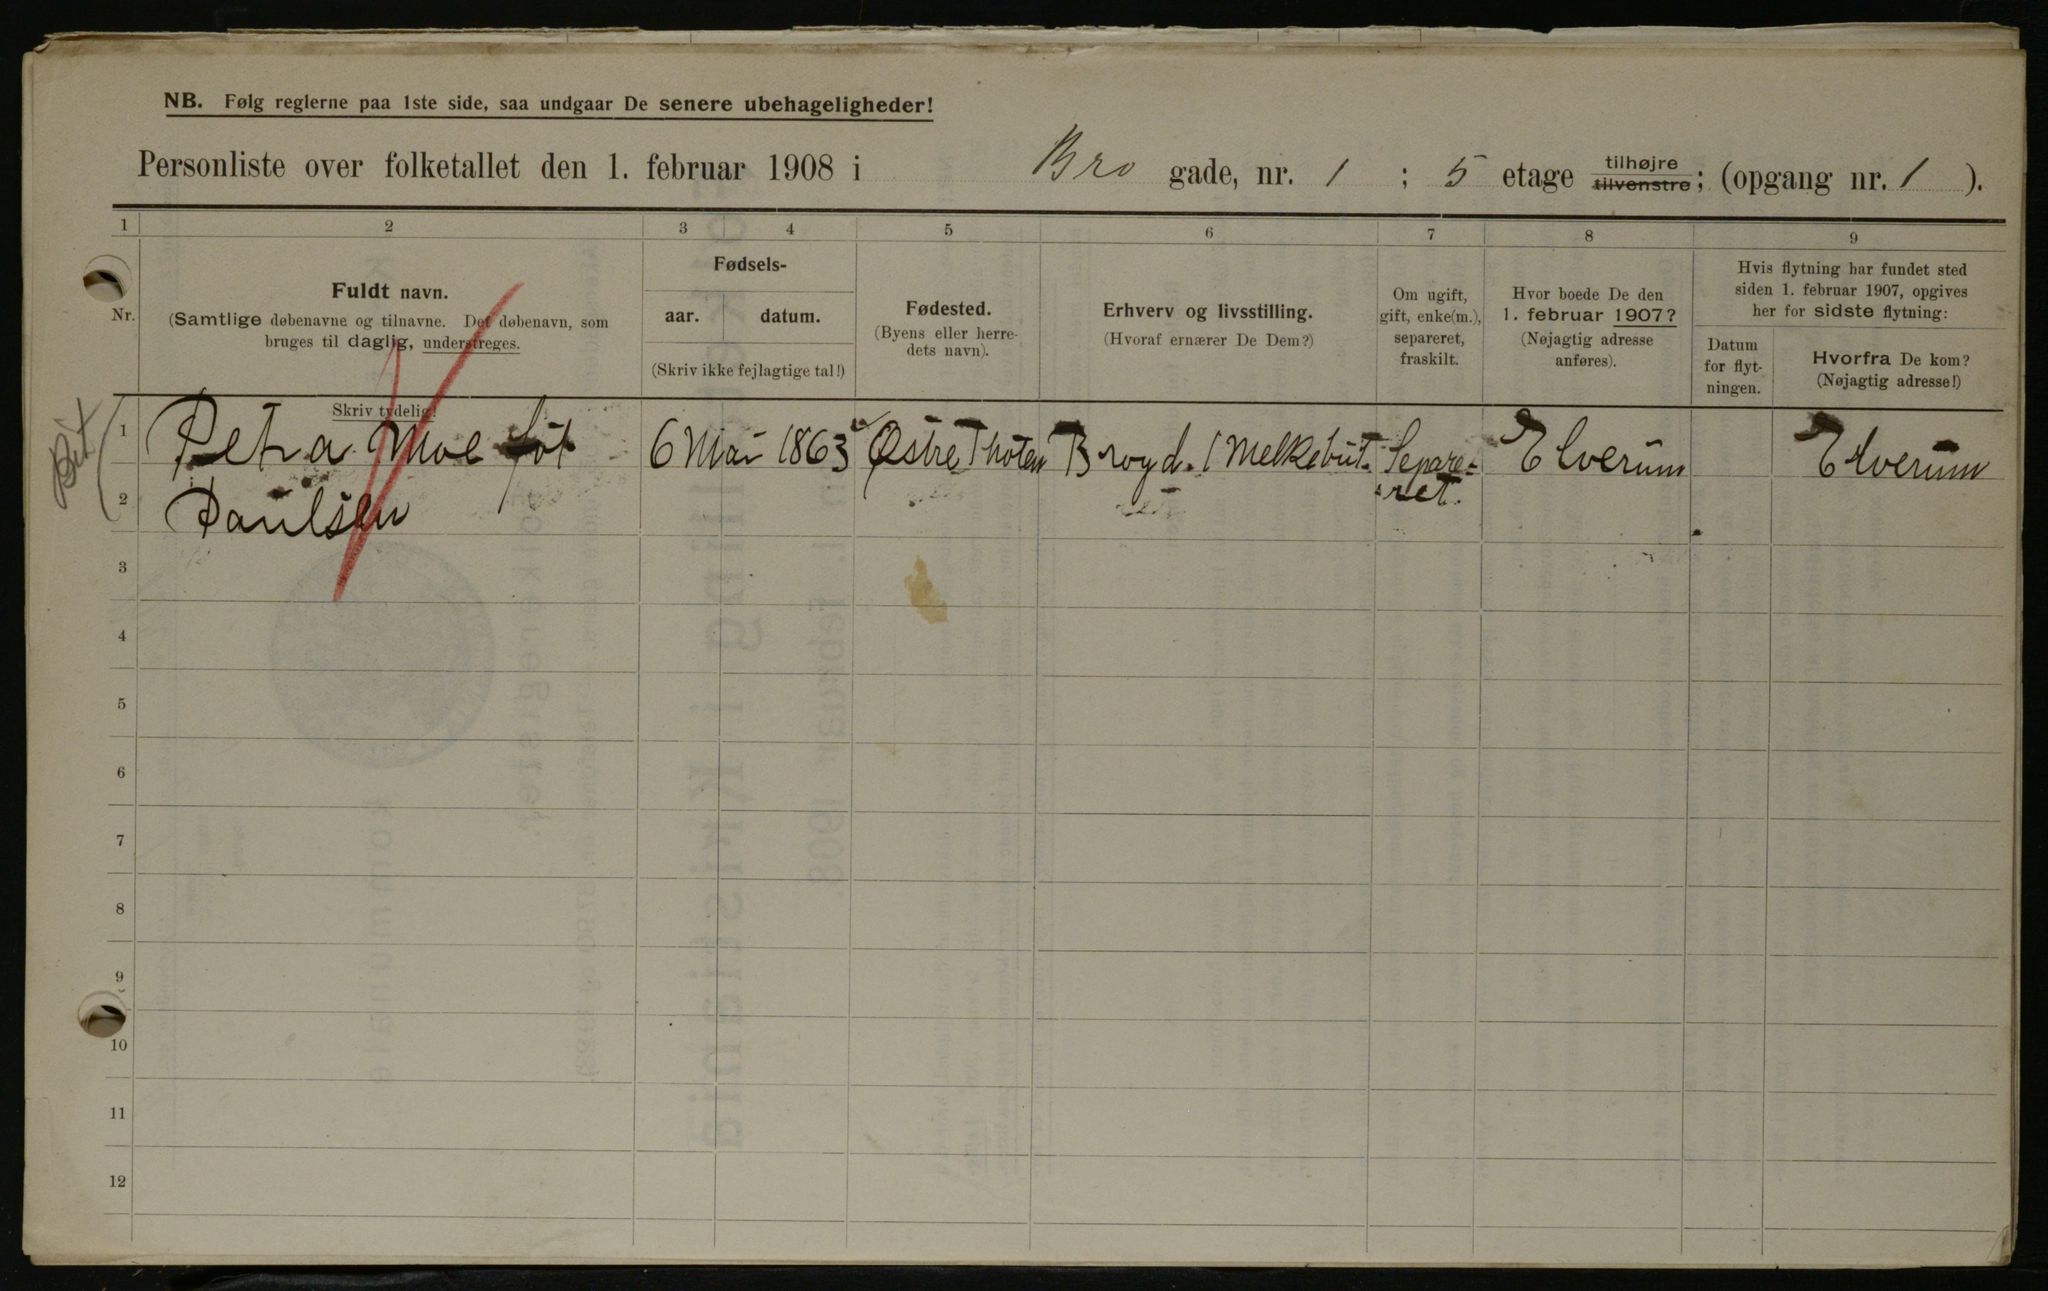 NB. Følg reglerne paa 1ste side, saa undgaar De senere ubehageligheder!
Personliste over folketallet den 1. februar 1908 i Bro gade, nr. 1 ; 5 etage tilhøjre tilvenstre; (opgang nr. 1 ).
1 2 3 4 5 6 7 8 9
Nr.
Fuldt navn.
(Samtlige døbenavne og tilnavne. Det døbenavn, som
bruges til daglig, understreges.
Skriv tydelig!
Fødsels-
aar. datum.
(Skriv ikke fejlagtige tal!)
Fødested.
(Byens eller herre-
dets navn).
Erhverv og livsstilling.
(Hvoraf ernærer De Dem?)
Om ugift,
gift, enke(m.),
separeret,
fraskilt.
Hvor boede De den
1. februar 1907?
(Nøjagtig adresse
anføres).
Hvis flytning har fundet sted
siden 1. februar 1907, opgives
her for sidste flytning:
Datum
for flyt-
ningen.
Hvorfra De kom?
(Nøjagtig adresse!)
1 Petra Moe föt 6 Mai 1863 Østre Thoten Brogd. 1 Melkebut. Separe= Elverum Elverum
2 Paulsen ret.
3
4
5
6
7
8
9
10
11
12